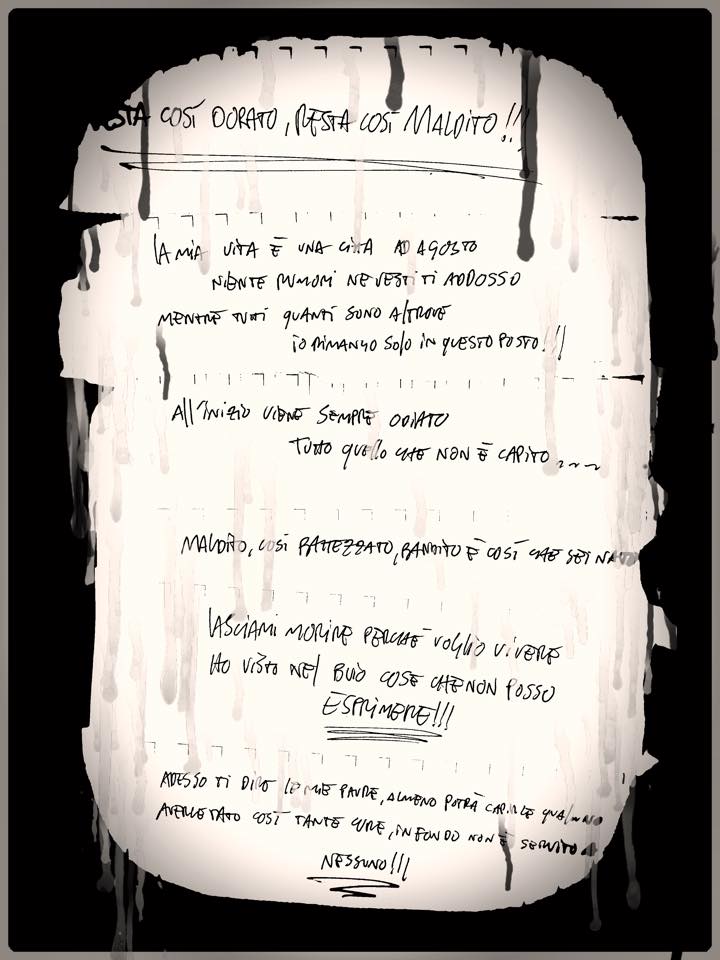 RESTA COSÍ DORATO, RESTA COSÍ MALDITO!!!
LA MIA VITA È UNA CITTÀ AD AGOSTO
NIENTE RUMORI NE VESTITI ADDOSSO
MENTRE TUTTI QUANTI SONO ALTROVE
IO RIMANGO SOLO IN QUESTO POSTO!!!
ALL'INIZIO VIENE SEMPRE ODIATO
TUTTO QUELLO CHE NON È CAPITO
MALDITO, COSÌ BATTEZZATO, BANDITO È COSÍ CHE SEI NATO
LASCIAMI MORIRE PERCHÈ VOGLIO VIVERE
HO VISTO NEL BUIO COSE CHE NON POSSO
ESPRIMERE!!!
ADESSO TI DIRÒ LE MIE PAURE, ALMENO POTRÀ CAPIRLE QUALCUNO
AVERE DATO COSÍ TANTE CURE, IN FONDO NON È SERVITO A
NESSUNO!!!